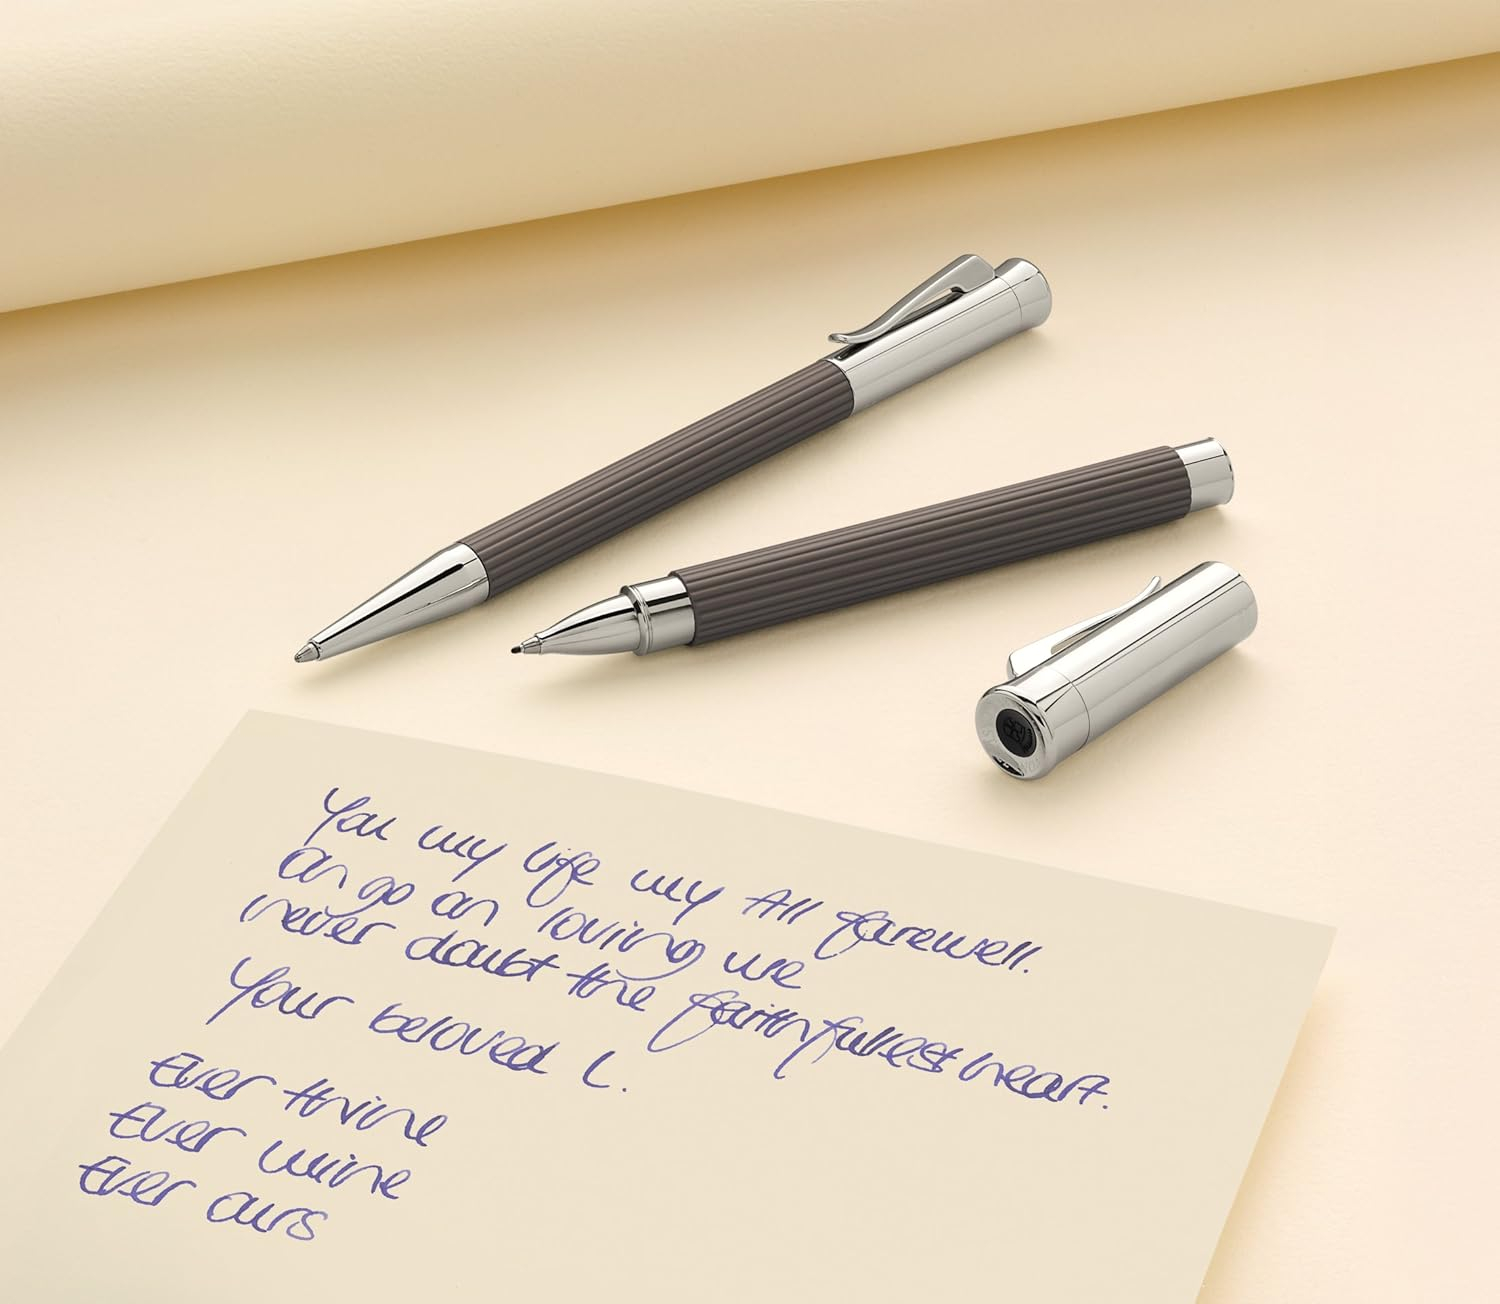 You my life my All farewell.
Oh go on loving me
never doubt the faithfullest heart.
Your beloved L.
Ever thine
Ever mine
Ever ours